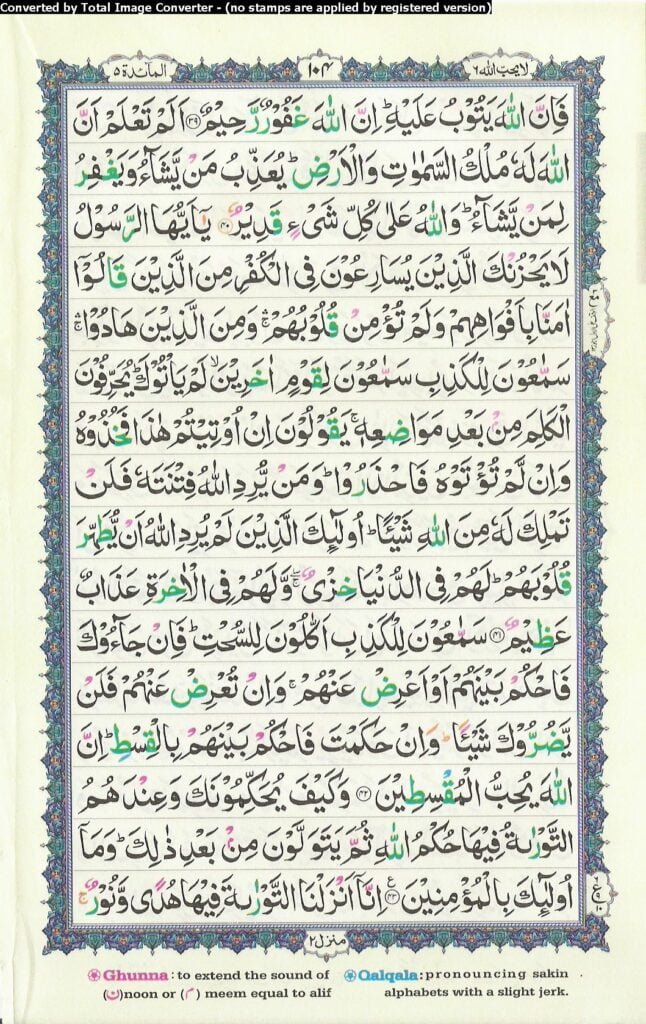 Converted by Total Image Converter - (no stamps are applied by registered version)
لا يحب الله ٦
١٠٤
المآئدة ٥
فَاِنَّ اللّٰهَ يَتُوْبُ عَلَيْهِ ؕ اِنَّ اللّٰهَ غَفُوْرٌ رَّحِيْمٌ ﴿۳۹﴾ اَلَمْ تَعْلَمْ اَنَّ
اللّٰهَ لَهٗ مُلْكُ السَّمٰوٰتِ وَالْاَرْضِ ؕ يُعَذِّبُ مَنْ يَّشَآءُ وَيَغْفِرُ
لِمَنْ يَّشَآءُ ؕ وَاللّٰهُ عَلٰى كُلِّ شَىْءٍ قَدِيْرٌ ﴿۴۰﴾ يٰۤاَيُّهَا الرَّسُوْلُ
لَا يَحْزُنْكَ الَّذِيْنَ يُسَارِعُوْنَ فِى الْكُفْرِ مِنَ الَّذِيْنَ قَالُوْۤا
اٰمَنَّا بِاَفْوَاهِهِمْ وَلَمْ تُؤْمِنْ قُلُوْبُهُمْ ۛۚ وَمِنَ الَّذِيْنَ هَادُوْا ۛۚ
سَمّٰعُوْنَ لِلْكَذِبِ سَمّٰعُوْنَ لِقَوْمٍ اٰخَرِيْنَ ۙ لَمْ يَاْتُوْكَ ؕ يُحَرِّفُوْنَ
الْكَلِمَ مِنْۢ بَعْدِ مَوَاضِعِهٖ ۚ يَقُوْلُوْنَ اِنْ اُوْتِيْتُمْ هٰذَا فَخُذُوْهُ
وَاِنْ لَّمْ تُؤْتَوْهُ فَاحْذَرُوْا ؕ وَمَنْ يُّرِدِ اللّٰهُ فِتْنَتَهٗ فَلَنْ
تَمْلِكَ لَهٗ مِنَ اللّٰهِ شَيْئًا ؕ اُولٰٓئِكَ الَّذِيْنَ لَمْ يُرِدِ اللّٰهُ اَنْ يُّطَهِّرَ
قُلُوْبَهُمْ ؕ لَهُمْ فِى الدُّنْيَا خِزْىٌ ۖۚ وَّلَهُمْ فِى الْاٰخِرَةِ عَذَابٌ
عَظِيْمٌ ﴿۴۱﴾ سَمّٰعُوْنَ لِلْكَذِبِ اَكّٰلُوْنَ لِلسُّحْتِ ؕ فَاِنْ جَآءُوْكَ
فَاحْكُمْ بَيْنَهُمْ اَوْ اَعْرِضْ عَنْهُمْ ۚ وَاِنْ تُعْرِضْ عَنْهُمْ فَلَنْ
يَّضُرُّوْكَ شَيْئًا ؕ وَاِنْ حَكَمْتَ فَاحْكُمْ بَيْنَهُمْ بِالْقِسْطِ ؕ اِنَّ
اللّٰهَ يُحِبُّ الْمُقْسِطِيْنَ ﴿۴۲﴾ وَكَيْفَ يُحَكِّمُوْنَكَ وَعِنْدَهُمُ
التَّوْرٰىةُ فِيْهَا حُكْمُ اللّٰهِ ثُمَّ يَتَوَلَّوْنَ مِنْۢ بَعْدِ ذٰلِكَ ؕ وَمَاۤ
اُولٰٓئِكَ بِالْمُؤْمِنِيْنَ ﴿۴۳﴾ اِنَّاۤ اَنْزَلْنَا التَّوْرٰىةَ فِيْهَا هُدًى وَّنُوْرٌ ۚ
منزل ٢
Ghunna: to extend the sound of
(ن)noon or (م) meem equal to alif
Qalqala: pronouncing sakin
alphabets with a slight jerk.